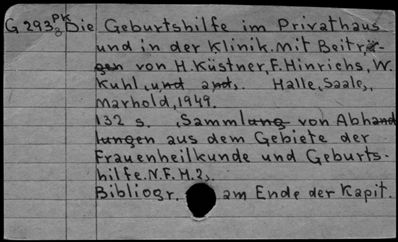 G 293 PK 8 Die Geburtshilfe im Privathaus
und in der Klinik. Mit Beiträ-
gen von H. Küstner, F. Hinrichs, W.
Kuhl, und and,. Halle, Saale,
Marhold, 1949.
132 s. (Sammlung von Abhand
lungen aus dem Gebiete der
Frauenheilkunde und Geburts-
hilfe. N.F. H. 2).
Bibliogr. am Ende der Kapit.